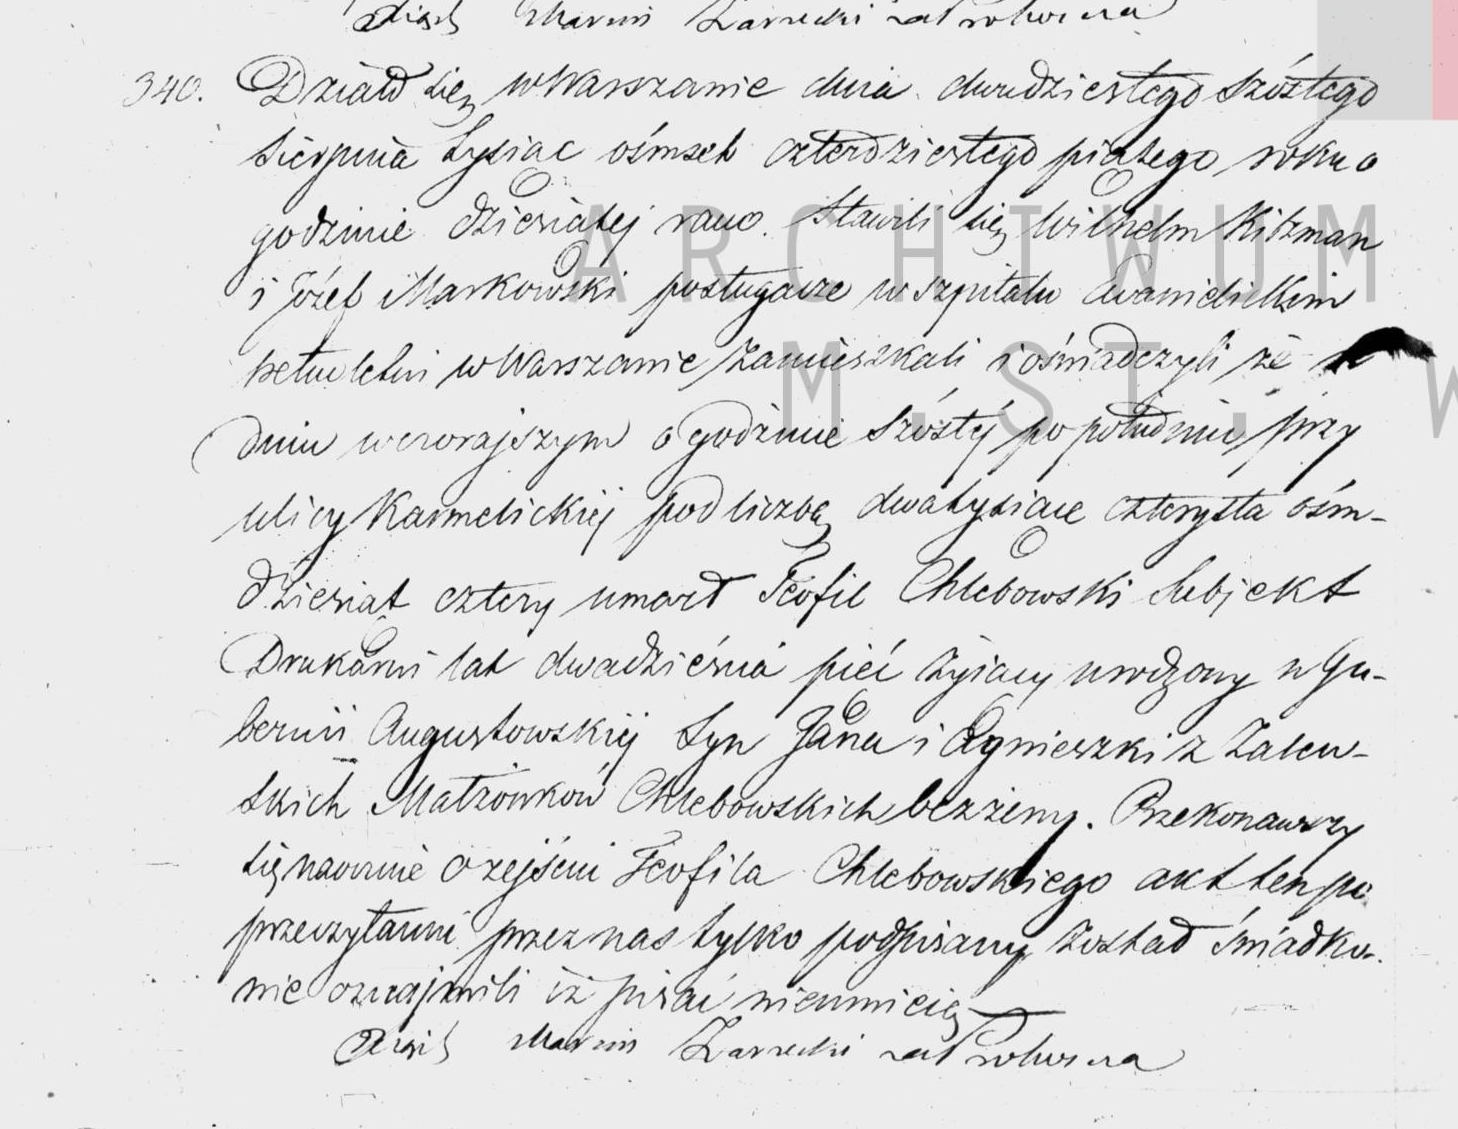 340. Działo się w Warszawie dnia dwudziestego szóstego
Sierpnia tysiąc ośmset czterdziestego piątego roku o
godzinie dziesiątej rano. Stawili się Wilhelm Kitzman
i Józef Markowski posługacze w szpitalu Ewanielickim
pełnoletni w Warszawie zamieszkali i oświadczyli że w
dniu wczorajszym o godzinie szóstej po południu przy
ulicy Karmelickiej pod liczbą dwatysiące czterysta ośm-
dziesiąt cztery umarł Teofil Chlebowski Subjekt
Drukarni lat dwadzieścia pięć żyiący urodzony w Gu-
bernii Augustowskiej syn Jana i Agnieszki z Zalew-
skich Małżonków Chlebowskich bezżenny. Przekonawszy
się naocznie o zejściu Teofila Chlebowskiego akt ten po
przeczytaniu przez nas tylko podpisany został świadko-
wie oznajmili iż pisać nieumieią
Marcin
ARCHIWUM
M. ST. W